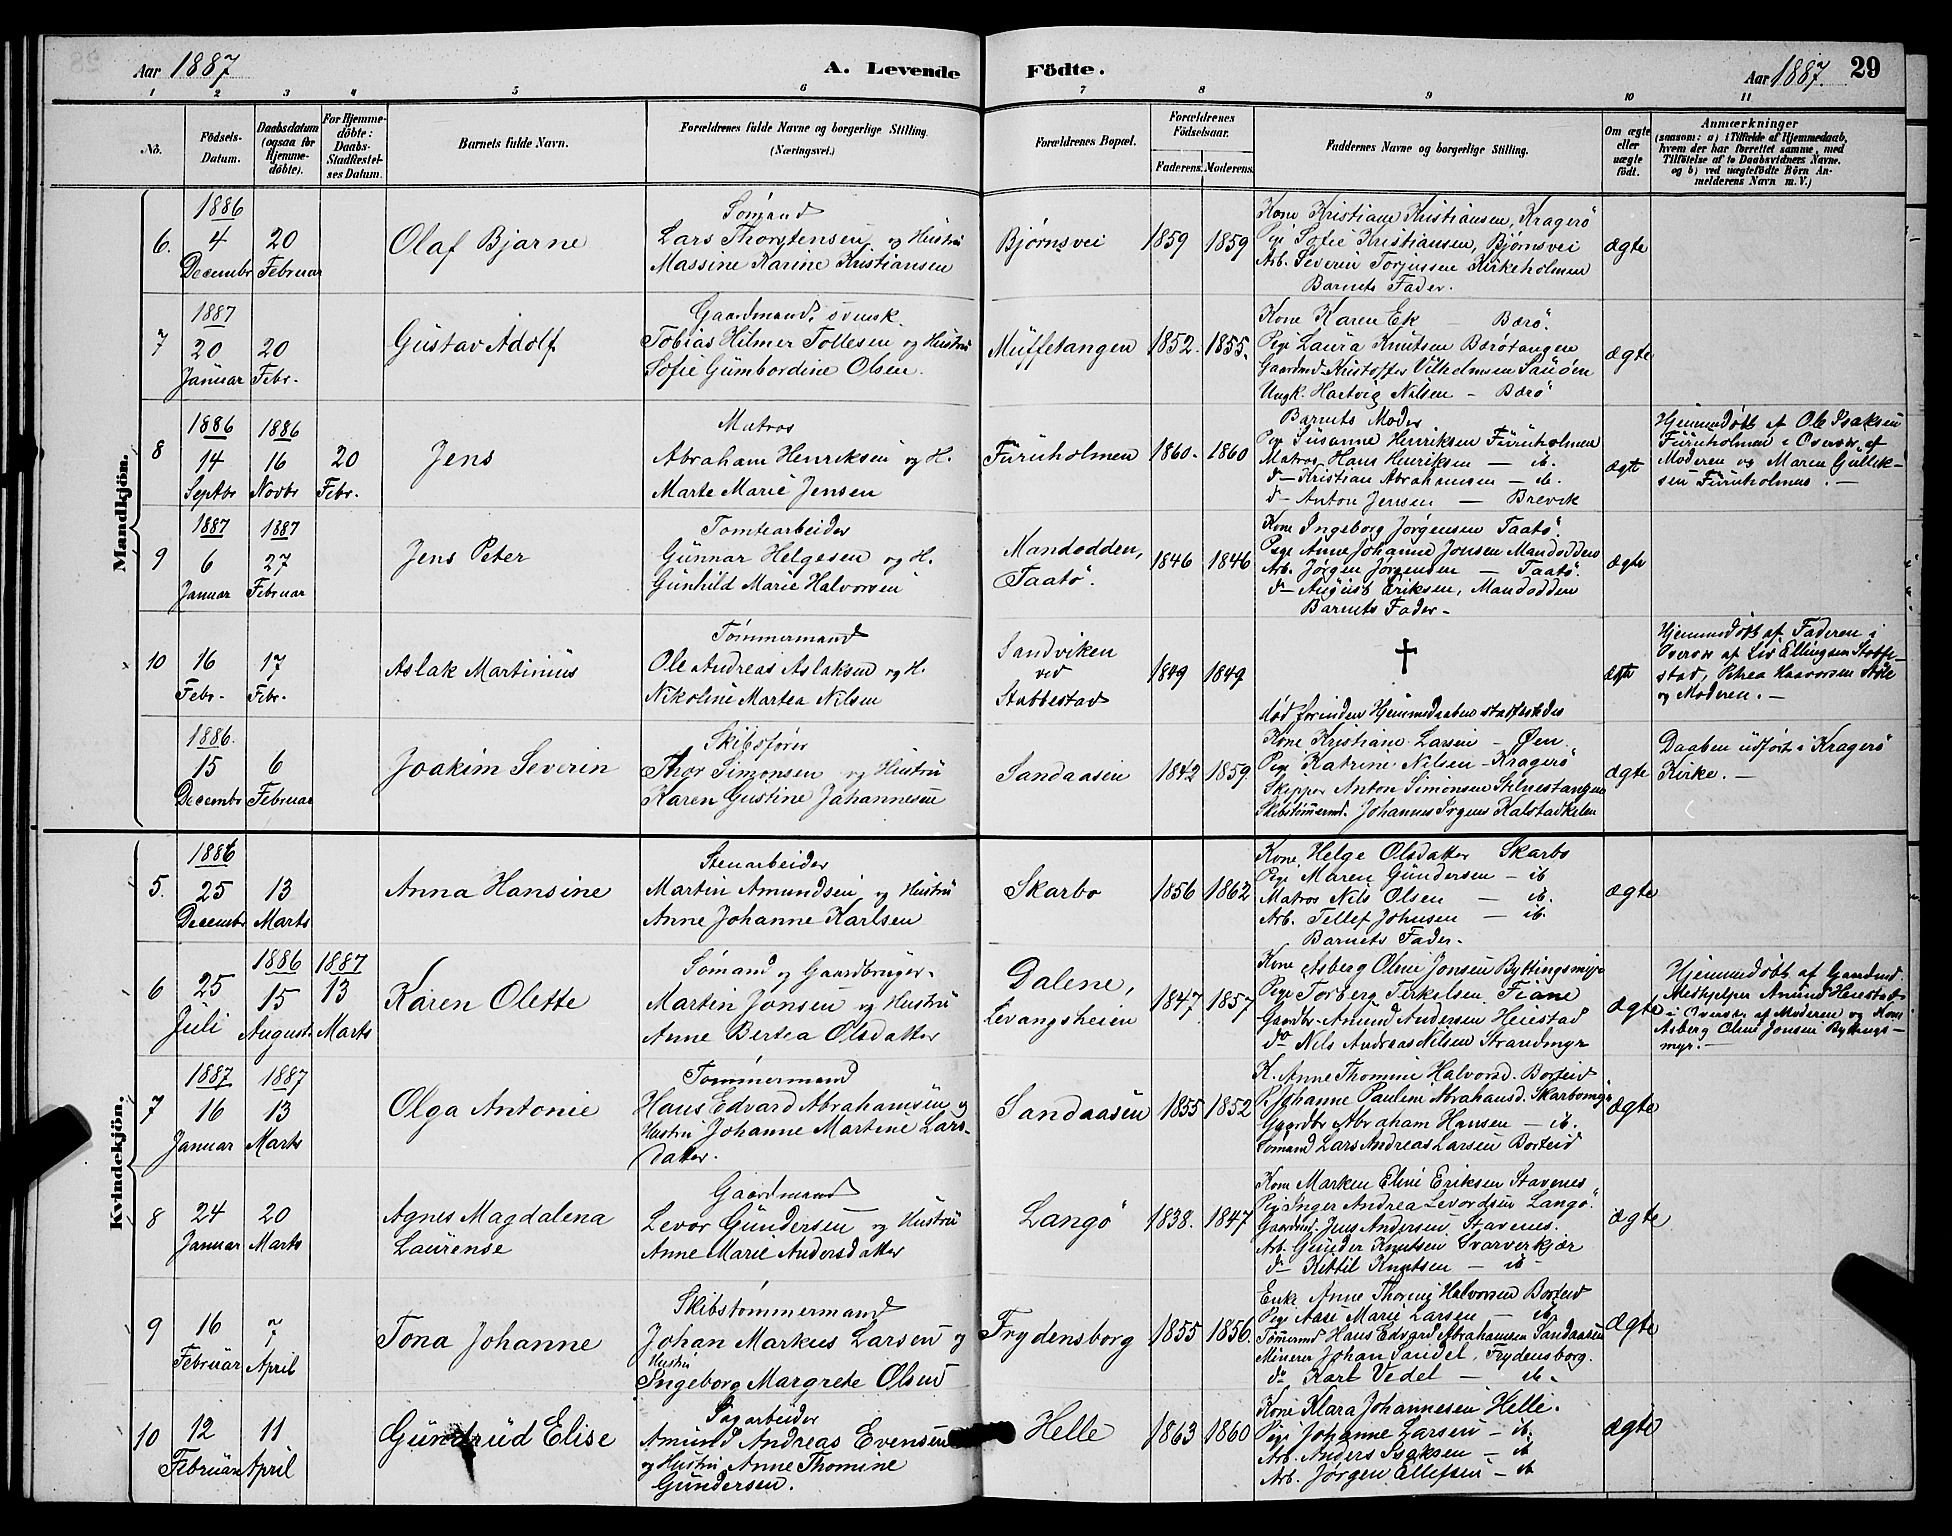 Aar 1887
A. Levende
Födte.
Aar 1887. 29
1 2 3 4 5 6 7 8 9 10 11
No.
Födsels-
Datum.
Daabsdatum
(ogsaa for
Hjemme-
döbte).
For Hjemme-
döbte:
Daabs-
Stadfæstel-
ses Datum.
Barnets fulde Navn.
Forældrenes fulde Navne og borgerlige Stilling.
(Næringsvei.)
Forældrenes Bopæl.
Forældrenes
Födselsaar.
Faderens. Moderens.
Faddernes Navne og borgerlige Stilling.
Om ægte
eller
uægte
födt.
Anmærkninger
(saasom: a) i Tilfælde af Hjemmedaab,
hvem der har forrettet samme, med
Tilföielse af to Daabsvidners Navne.
og b) ved uægtefödte Börn An-
melderens Navn m. V.)
Mandkjön.
6.
1886
4
Decembr
20
Februar
Olaf Bjarne
Sømand
Lars Thorstensen og Hustru
Massine Karine Kristiansen
Bjørnsvei
1859 1859
Kone Kristiane Kristiansen, Kragerø
Pige Sofie Kristiansen, Bjørnsvei
Arb. Severin Torjussen Kirkeholmen
Barnets Fader.
ægte
7
1887
20
Januar
20
Febr.
Gustav Adolf
Gaardmand, svensk.
Tobias Hilmer Tollesen og Hustru
Sofie Gumbordine Olsen.
Muffetangen
1852. 1855.
Kone Karen Ek — Bærø.
Pige Laura Knutsen Bærøtangen
Gaardmd Kristoffer Vilhelmsen Sauøen
Ungk. Hartvig Nilsen — Bærø
ægte
8
1886
14
Septbr
1886
16
Novbr
20
Febr.
Jens
Matros
Abraham Henriksen og H.
Marte Marie Jensen
Furuholmen
1860. 1860
Barnets Moder
Pige Susanne Henriksen Furuholmen
Matros Hans Henriksen — ib.
do — Kristian Abrahamsen — ib.
do — Anton Jensen — Brevik
ægte
Hjemmedøbt af Ole Isaksen
Furuholmen i Overvær af
Moderen og Maren Gullik-
sen Furuholmen. —
9
1887
6
Januar
1887
27
Februar
Jens Peter
Tomtearbeider
Gunnar Helgesen og H.
Gunhild Marie Halvorsen
Mandodden,
Taatø.
1846 1846
Kone Ingeborg Jørgensen Taatø.
Pige Anne Johanne Jonsen Mandodden
Arb. Jørgen Jørgensen — Taatø.
do — August Eriksen, Mandodden
Barnets Fader.
ægte
10
16
Febr.
17
Febr.
Aslak Martinius
Tømmermand
Ole Andreas Aslaksen og H.
Nikoline Martea Nilsen
Sandviken
ved
Stabbestad
1849 1849
†
død forinden Hjemmedaaben stadfæstedes
ægte
Hjemmedøbt af Faderen i
Overvær af Liv Ellingsen Stabbe-
stad, Petrea Haavorsen
og Moderen. —
1886.
15
Decembr
6
Februar
Joakim Severin
Skibsfører
Thor Simonsen og Hustru
Karen Gustine Johannesen
Sandaasen
1842 1859
Kone Kristiane Larsen — Øen.
Pige Katrine Nilsen — Kragerø
Skipper Anton Simonsen Stilnestangen
Skibstømmermd. Johannes Kalstadkilen
ægte
Daaben udført i Kragerø
Kirke. —
Kvindekjön.
5.
1886
25
Decembr
13
Marts
Anna Hansine
Stenarbeider
Martin Amundsen og Hustru
Anne Johanne Karlsen
Skarbo
1856 1862
Kone Helge Olsdatter Skarbo
Pige Maren Gundersen — ib
Matros Nils Olsen — ib.
Arb. Tellef Johnsen — ib.
Barnets Fader.
ægte
6
25
Juli
1886
15
August
1887
13
Marts
Karen Olette
Sømand og Gaardbruger.
Martin Jonsen og Hustru
Anne Bertea Olsdatter
Dalene,
Levangsheien
1847 1857
Kone Asberg Oline Jonsen Byttingsmyr
Pige Torberg Terkelsen Fiane
Gaardbr. Amund Andersen Heistad
do Nils Andreas Nilsen Strandmyr
ægte
Hjemmedøbt af Gaardmd.
Medhjelper Amund Heistad
i Overvær af Moderen og Kone
Asberg Oline Jonsen Byttings-
myr. —
7
1887
16
Januar
1887
13
Marts
Olga Antonie
Tømmermand
Hans Edvard Abrahamsen og
Hustru Johanne Martine Lars-
datter.
Sandaasen
1855 1852
K. Anne Thomine Halvorsd. Borteid
P. Johanne Pauline Abrahamsd. Skarbomyr
Gaardbr Abraham Hansen — ib.
Sømand Lars Andreas Larsen Borteid
ægte
8
24
Januar
20
Marts
Agnes Magdalena
Laurense
Gaardmand
Levor Gundersen og Hustru
Anne Marie Andersdatter
Langø
1838. 1847
Kone Marken Eline Eriksen Stavenes
Pige Inger Andrea Levordsen Langø.
Gaardmd. Jens Andersen Stavenes.
Arb. Gunder Knutsen Svarverkjær
do — Kittil Knutsen — ib
ægte
9
16
Februar
7
April
Tona Johanne
Skibstømmermand
Johan Markus Larsen og
Hustru
Ingeborg Margrete Olsen
Frydensborg
1855 1856.
Enke Anne Thorine Halvorsen Borteid
Pige Aase Marie Larsen — ib.
Tømermd Hans Edvard Abrahamsen Sandaasen
Minerer Johan Sandel, Frydensborg.
do Karl Vedel — ib.
ægte
10
12
Februar
11
April
Gundrud Elise
Sagarbeider
Amund Andreas Evensen
og Hustru Anne Thomine
Gundersen.
Helle
1863 1860
Kone Klara Johannesen Helle.
Pige Johanne Larsen — ib.
Arb. Anders Isaksen — ib
Arb. Jørgen Ellefsen — ib
ægte